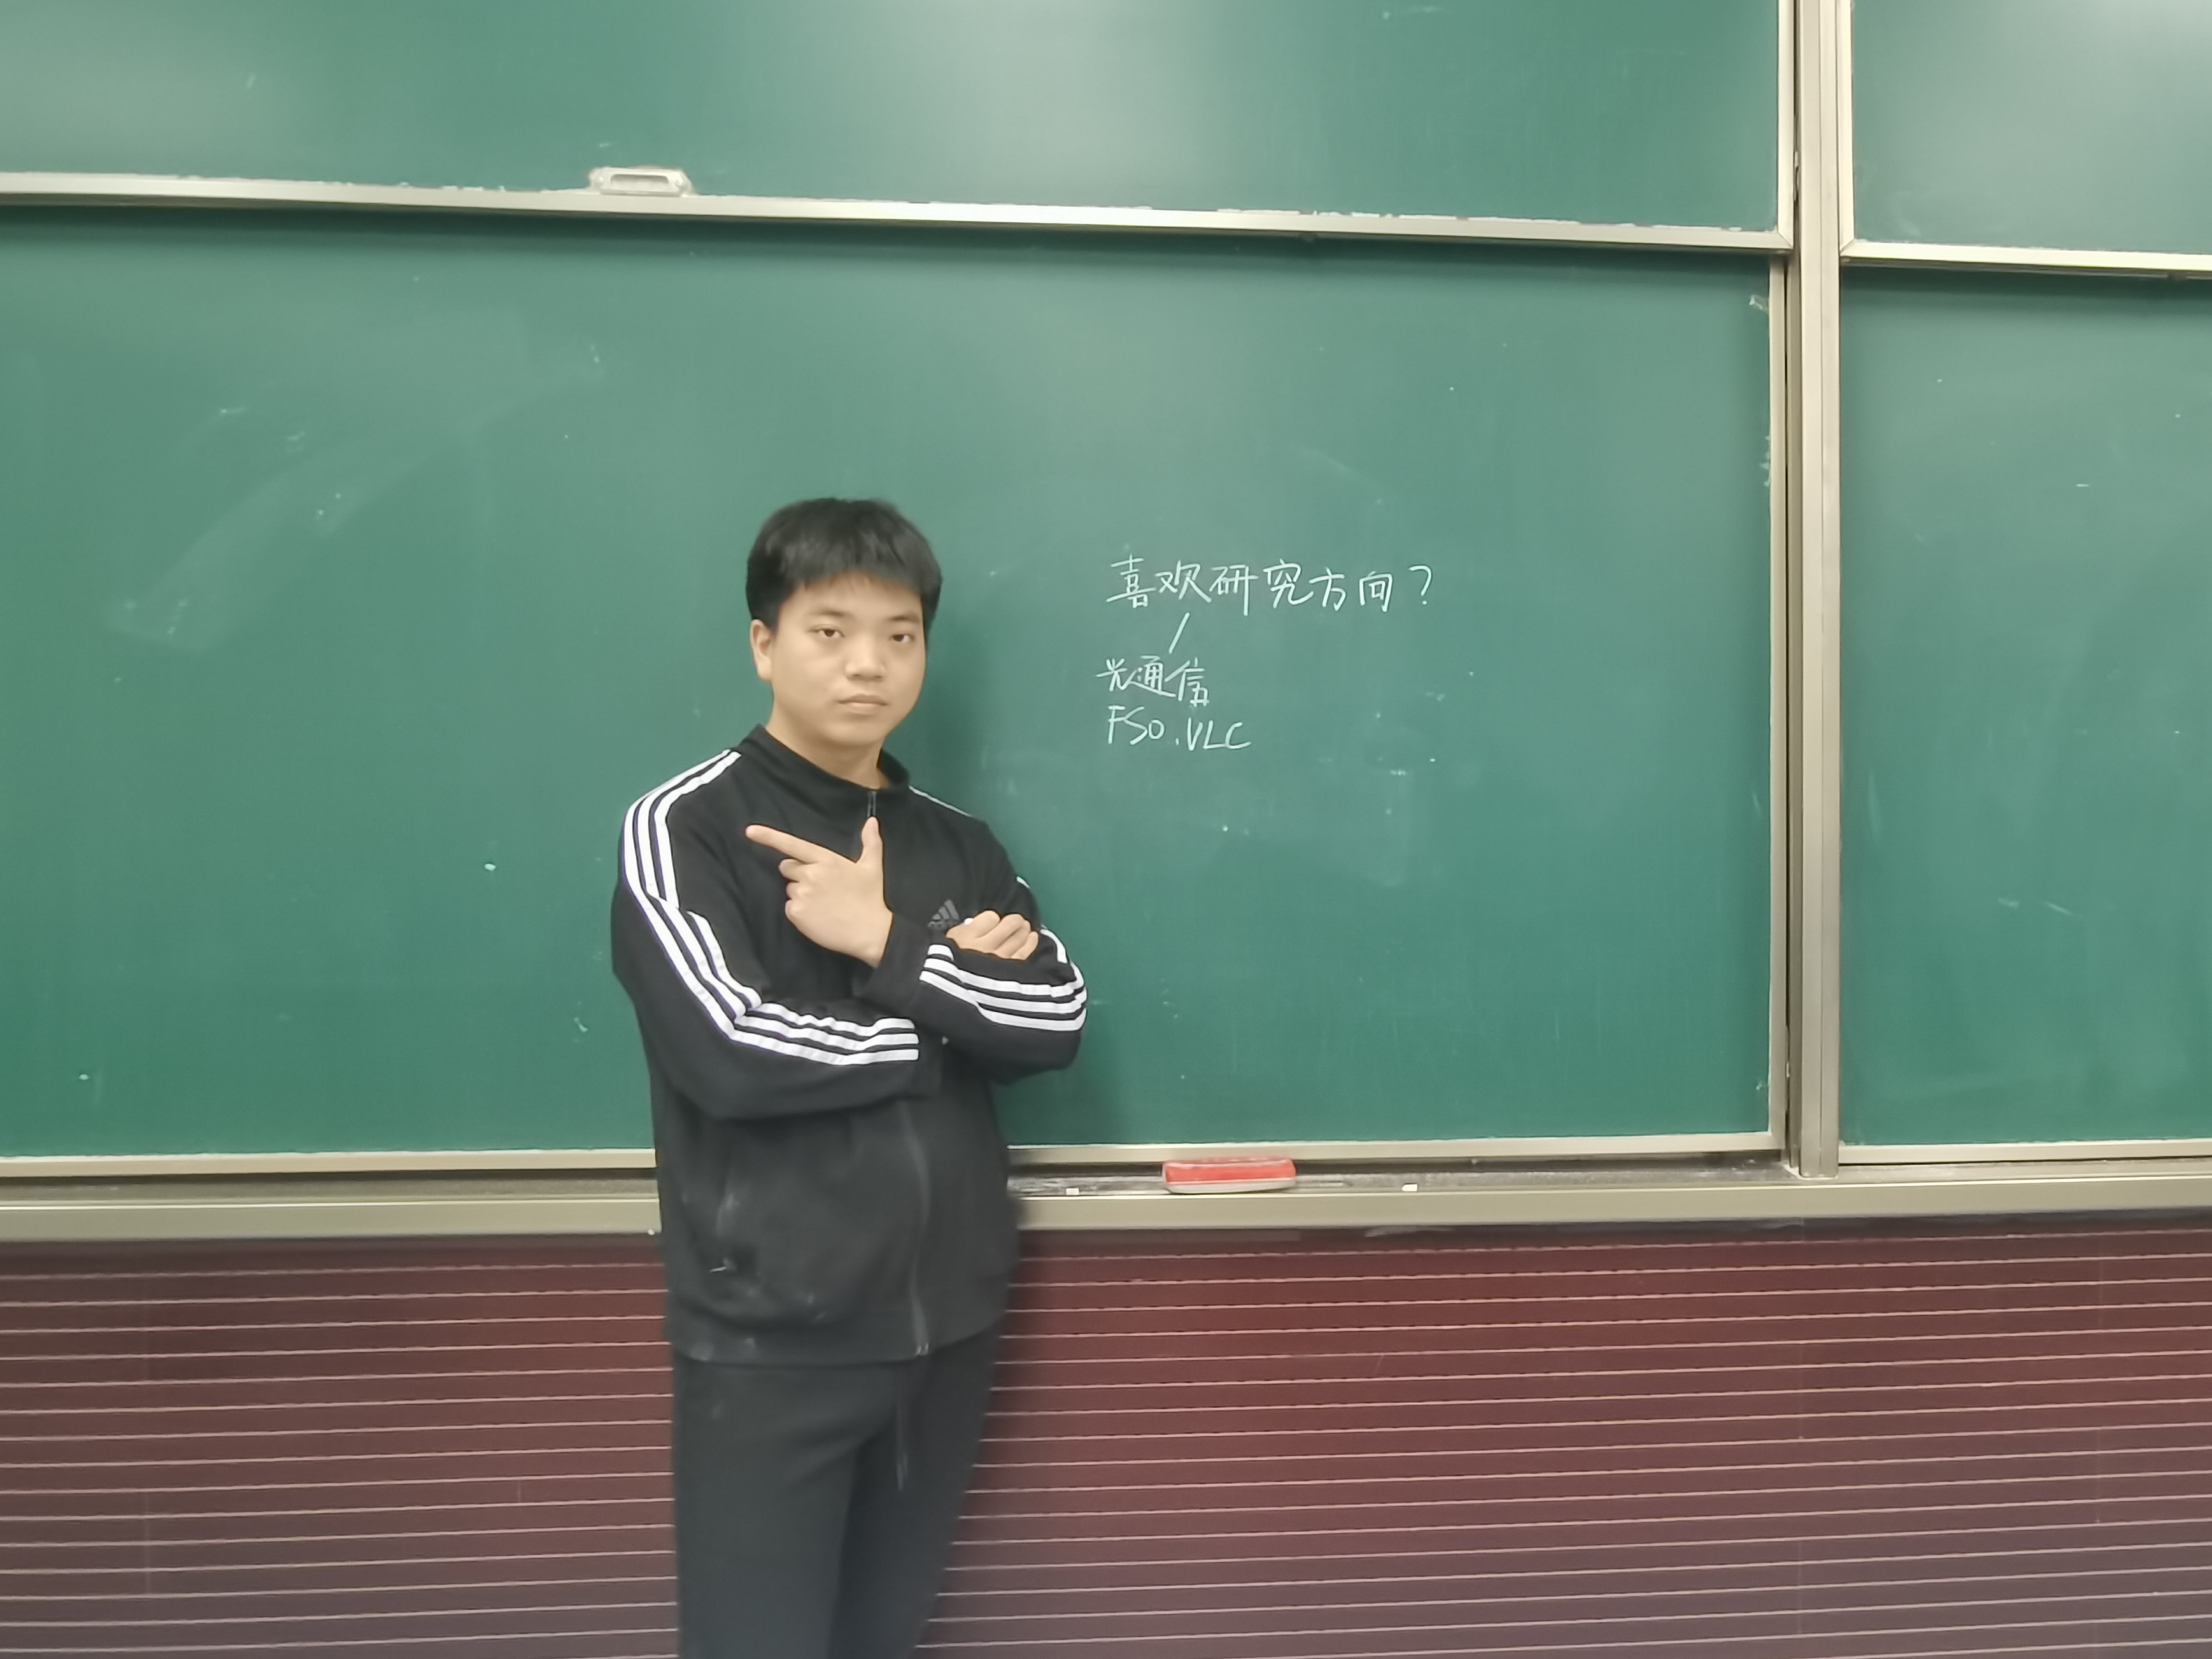 喜欢研究方向?
光通信
FSO.VLC